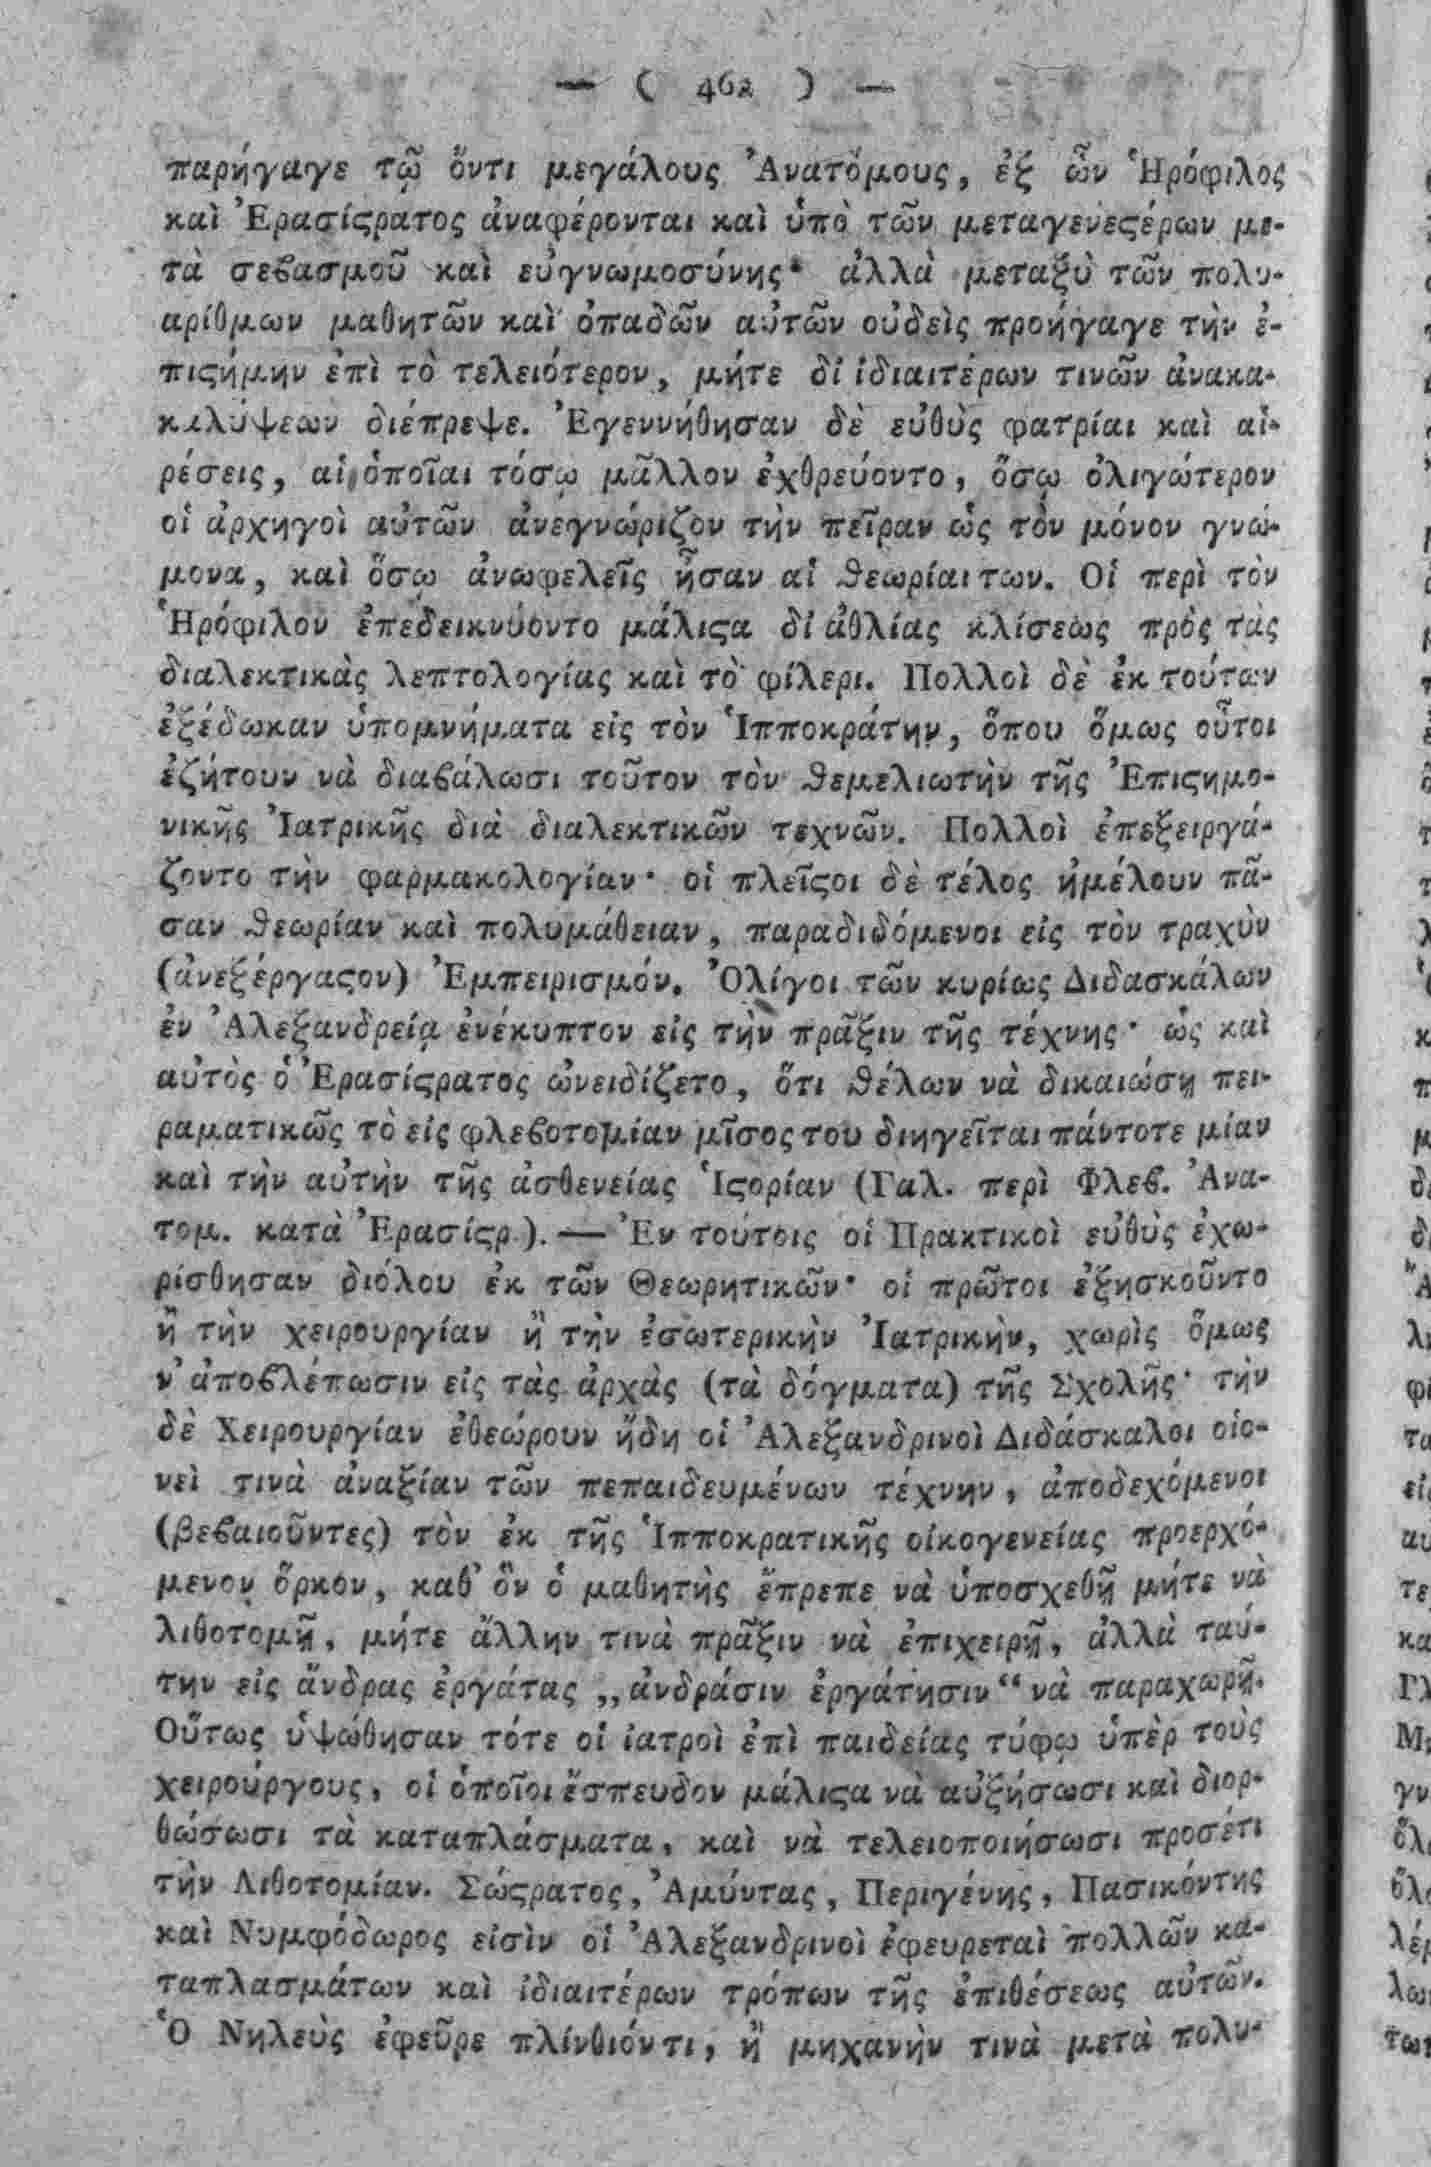 — ( 462 ) —
παρήγαγε τῷ ὄντι μεγάλους Ἀνατόμους, ἐξ ὧν Ἡρόφιλος
καὶ Ἐρασίςρατος ἀναφέρονται καὶ ὑπὸ τῶν μεταγενεςέρων με-
τὰ σεϐασμοῦ καὶ εὐγνωμοσύνης· ἀλλὰ μεταξὺ τῶν πολυ-
αρίθμων μαθητῶν καὶ ὀπαδῶν αὐτῶν οὐδεὶς προήγαγε τὴν ἐ-
πιςήμην ἐπὶ τὸ τελειότερον, μήτε δἰ ἰδιαιτέρων τινῶν ἀνακα-
καλύψεων διέπρεψε. Ἐγεννήθησαν δὲ εὐθὺς φατρίαι καὶ αἱ-
ρέσεις, αἱ ὁποῖαι τόσῳ μᾶλλον ἐχθρεύοντο, ὅσῳ ὀλιγώτερον
οἱ ἀρχηγοὶ αὐτῶν ἀνεγνώριζον τὴν πεῖραν ὡς τὸν μόνον γνώ-
μονα, καὶ ὅσῳ ἀνωφελεῖς ἦσαν αἱ ϑεωρίαι των. Οἱ περὶ τὸν
Ἡρόφιλον ἐπεδεικνύοντο μάλιςα δἰ ἀθλίας κλίσεως πρὸς τὰς
διαλεκτικὰς λεπτολογίας καὶ τὸ φίλερι. Πολλοὶ δὲ ἐκ τούτων
ἐξέδωκαν ὑπομνήματα εἰς τὸν Ἱπποκράτην, ὅπου ὅμως οὗτοι
ἐζήτουν νὰ διαϐάλωσι τοῦτον τὸν ϑεμελιωτὴν τῆς Ἐπιςημο-
νικῆς Ἰατρικῆς διὰ διαλεκτικῶν τεχνῶν. Πολλοὶ ἐπεξειργά-
ζοντο τὴν φαρμακολογίαν· οἱ πλεῖςοι δὲ τέλος ἠμέλουν πᾶ-
σαν ϑεωρίαν καὶ πολυμάθειαν, παραδιδόμενοι εἰς τὸν τραχὺν
(ἀνεξέργαςον) Ἐμπειρισμόν. Ὀλίγοι τῶν κυρίως Διδασκάλων
ἐν Ἀλεξανδρείᾳ ἐνέκυπτον εἰς τὴν πρᾶξιν τῆς τέχνης· ὡς καὶ
αὐτὸς ὁ Ἐρασίςρατος ὠνειδίζετο, ὅτι ϑέλων νὰ δικαιώσῃ πει-
ραματικῶς τὸ εἰς φλεϐοτομίαν μῖσος του διηγεῖται πάντοτε μίαν
καὶ τὴν αὐτὴν τῆς ἀσθενείας Ἱςορίαν (Γαλ. περὶ Φλεϐ. Ἀνα-
τομ. κατὰ Ἐρασίςρ.). — Ἐν τούτοις οἱ Πρακτικοὶ εὐθὺς ἐχω-
ρίσθησαν διόλου ἐκ τῶν Θεωρητικῶν· οἱ πρῶτοι ἐξησκοῦντο
ἢ τὴν χειρουργίαν ἢ τὴν ἐσωτερικὴν Ἰατρικὴν, χωρὶς ὅμως
ν' ἀποϐλέπωσιν εἰς τὰς ἀρχὰς (τὰ δόγματα) τῆς Σχολῆς· τὴν
δὲ Χειρουργίαν ἐθεώρουν ἤδη οἱ Ἀλεξανδρινοὶ Διδάσκαλοι οἱο-
νεὶ τινὰ ἀναξίαν τῶν πεπαιδευμένων τέχνην, ἀποδεχόμενοι
(βεϐαιοῦντες) τὸν ἐκ τῆς Ἱπποκρατικῆς οἰκογενείας προερχό-
μενον ὅρκον, καθ' ὃν ὁ μαθητὴς ἔπρεπε νὰ ὑποσχεθῇ μήτε νὰ
λιθοτομῇ, μήτε ἄλλην τινὰ πρᾶξιν νὰ ἐπιχειρῇ, ἀλλὰ ταύ-
την εἰς ἄνδρας ἐργάτας „ἀνδράσιν ἐργάτησιν“ νὰ παραχωρῇ.
Οὕτως ὑψώθησαν τότε οἱ ἰατροὶ ἐπὶ παιδείας τύφῳ ὑπὲρ τοὺς
χειρούργους, οἱ ὁποῖοι ἔσπευδον μάλιςα νὰ αὐξήσωσι καὶ διορ-
θώσωσι τὰ καταπλάσματα, καὶ νὰ τελειοποιήσωσι προσέτι
τὴν Λιθοτομίαν. Σώςρατος, Ἀμύντας, Περιγένης, Πασικόντης
καὶ Νυμφόδωρος εἰσὶν οἱ Ἀλεξανδρινοὶ ἐφευρεταὶ πολλῶν κα-
ταπλασμάτων καὶ ἰδιαιτέρων τρόπων τῆς ἐπιθέσεως αὐτῶν.
Ὁ Νηλεὺς ἐφεῦρε πλίνθιόν τι, ἢ μηχανὴν τινὰ μετὰ πολυ-